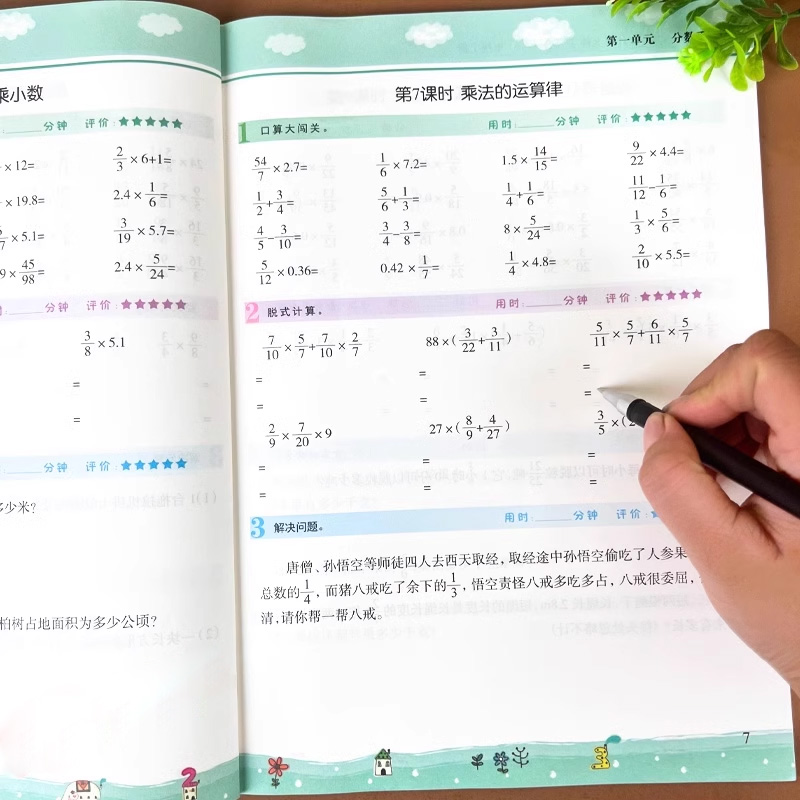 乘小数
分钟 评价:
×12=
2/3×6+1=
×19.8=
2.4×1/6=
×5.1=
3/19×5.7=
9×45/98=
2.4×5/24=
分钟 评价:
3/8×5.1
=
=
分钟 评价:
多少米?
柏树占地面积为多少公顷?
第一单元 分数
第7课时 乘法的运算律
1 口算大闯关。 用时: 分钟 评价:
54/7×2.7= 1/6×7.2= 1.5×14/15= 9/22×4.4=
1/2+3/4= 5/6+1/3= 1/4+1/6= 11/12-1/6=
4/5-3/10= 3/4-3/8= 8×5/24= 1/3×5/6=
5/12×0.36= 0.42×1/7= 1/4×4.8= 2/10×5.5=
2 脱式计算。 用时: 分钟 评价:
7/10×5/7+7/10×2/7 88×(3/22+3/11) 5/11×5/7+6/11×5/7
= = =
= = =
2/9×7/20×9 27×(8/9+4/27) 3/5×(2
= = =
= = =
3 解决问题。 用时: 分钟 评价:
唐僧、孙悟空等师徒四人去西天取经,取经途中孙悟空偷吃了人参果
总数的1/4,而猪八戒吃了余下的1/3,悟空责怪八戒多吃多占,八戒很委屈,
清,请你帮一帮八戒。
2
7